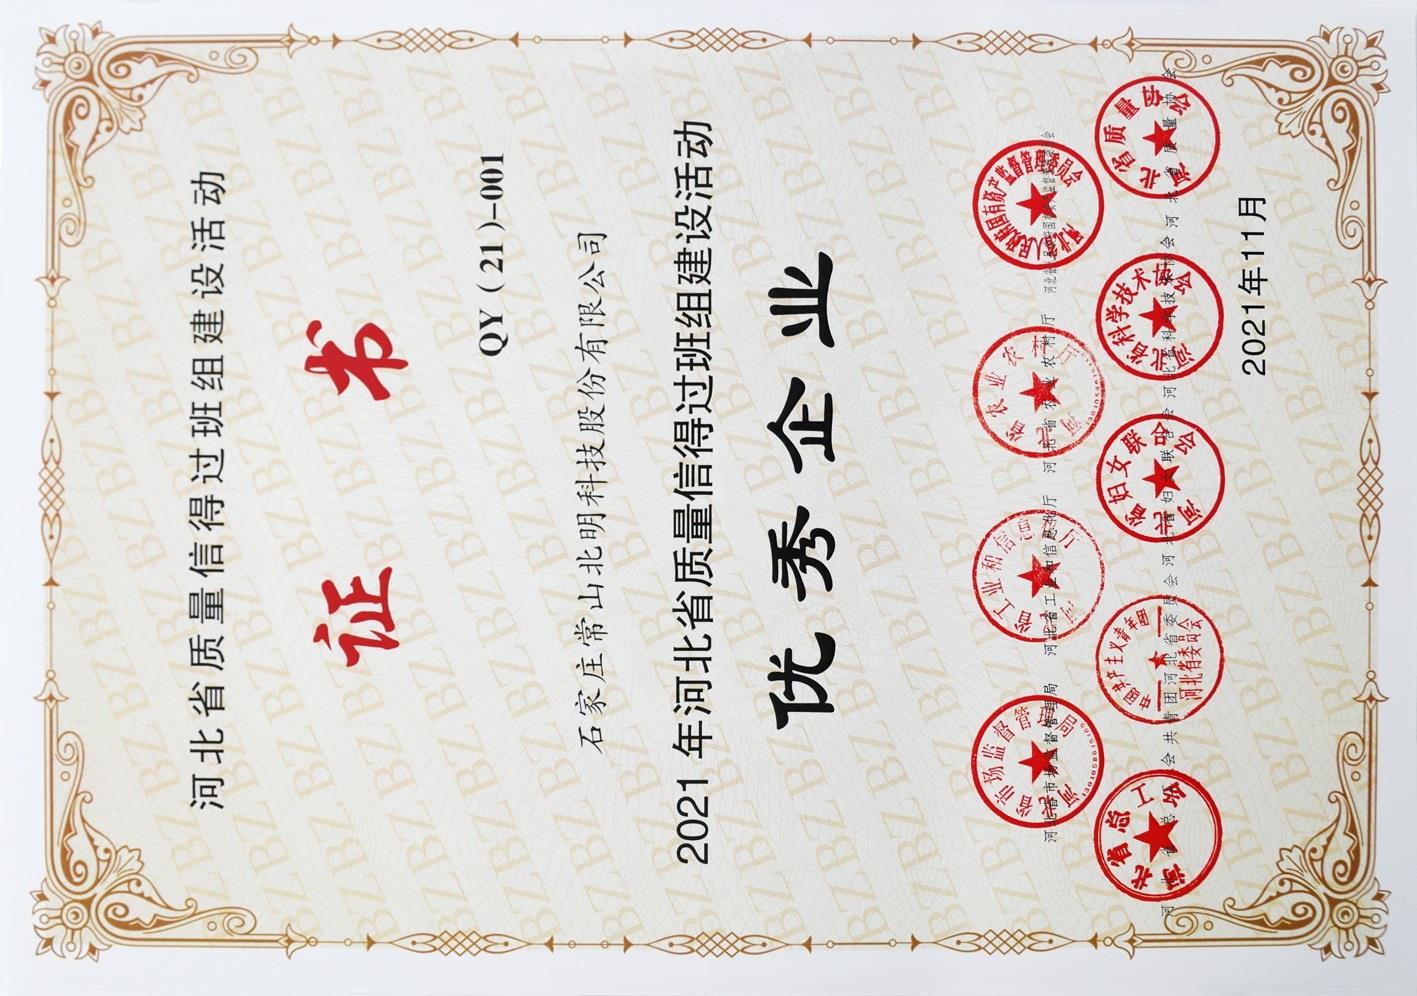 河北省质量信得过班组建设活动
证书
QY（21）-001
石家庄常山北明科技股份有限公司
2021年河北省质量信得过班组建设活动
优秀企业
河北省市场监督管理局 河北省工业和信息化厅 河北省农业农村厅 河北省人民政府国有资产监督管理委员会
河北省总工会 共青团河北省委员会 河北省妇女联合会 河北省科学技术协会 河北省质量协会
2021年11月